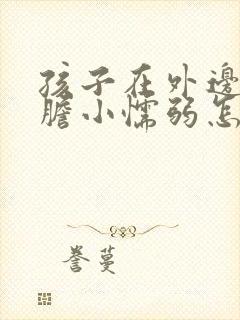 孩子在外邊
膽小懦弱怎
誉蔓